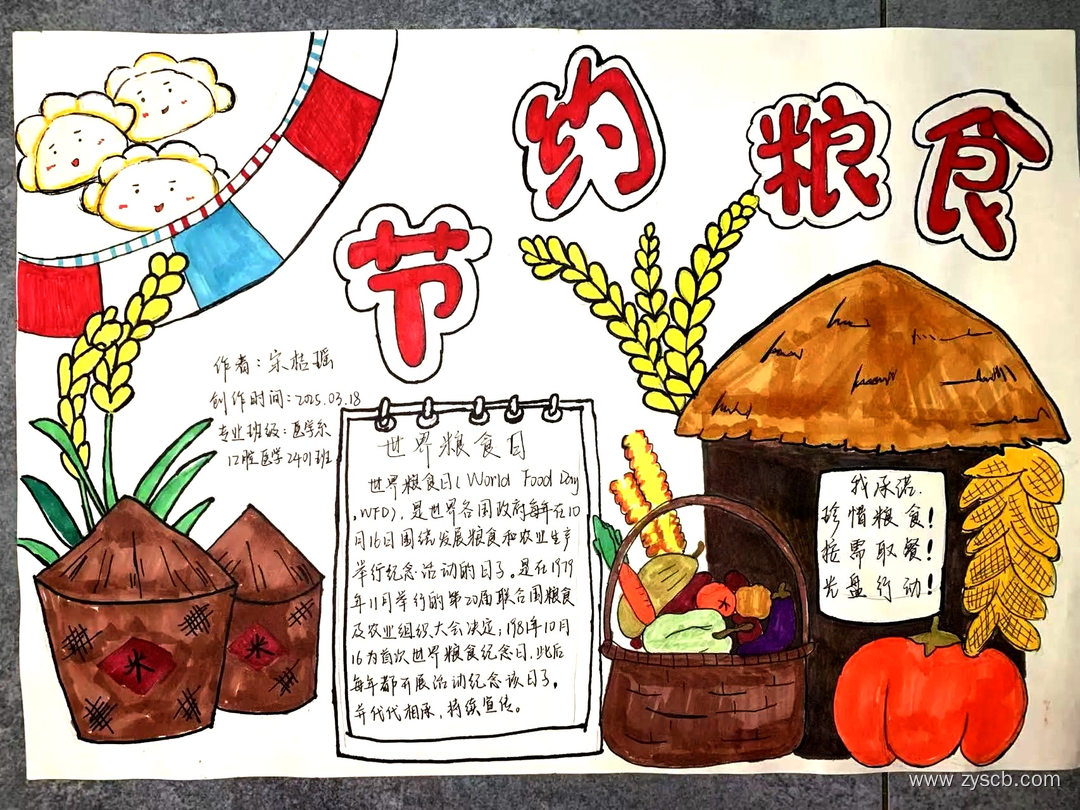 节约粮食
作者：宋桔瑶
创作时间：2025.03.18
专业班级：医学系
口腔医学2401班
世界粮食日
世界粮食日（World Food Day
,WFD），是世界各国政府每年在10
月16日围绕发展粮食和农业生产
举行纪念活动的日子。是在1979
年11月举行的第20届联合国粮食
及农业组织大会决定：1981年10月
16为首次世界粮食纪念日，此后
每年都开展活动纪念该日子。
并代代相承，持续宣传。
我承诺，
珍惜粮食！
按需取餐！
光盘行动！
米
米
www.zyscb.com